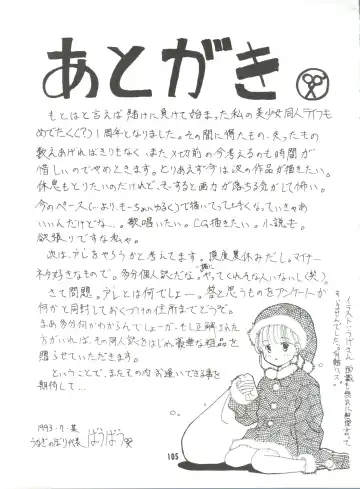 あとがき
もとはと言えば賭けに負けて始まった私の美少女同人ライフも
めでたく(?)1周年となりました。その間に得たもの、失ったもの
数えあげればきりもなく、また〆切前の今考えるのも時間が
惜しいのでやめときます。とりあえず今は次の作品が描きたい。
休息もとりたいのだけれど、そーすると画力が落ちる気がして怖い。
今のペース(…より、もーちょいゆるく)で描いて
いいんだけどな…。歌唱いたい。CG描きたい。小説
欲張りですな私ゃ。
次は、アレをやろうかと考えてます。夏休みだし。マイナー
ネタ好きなもので。多分個人誌だな。やってくんないし(笑)
さて問題。アレとは何でしょー。答と思うものをアンケートか
何かと同封しておくつけの住所までどうぞ。
まあ多分何かわかるんでしょーがーもし正解された
方がいれば、その同人誌をはじめ豪華な粗品を
贈らせていただきます。
ということで、またその内お逢いできる事を
期待して…
1993.7.某
うなぎのぼり代表 ぱうぱう
105